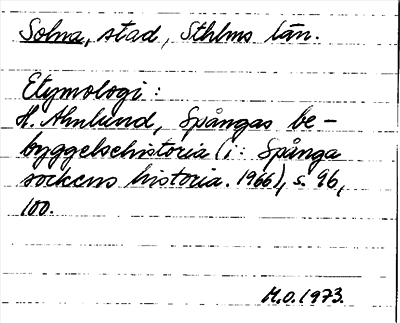 Solna, stad, Sthlms län.
Etymologi:
H. Ahnlund, Spångas be-
byggelsehistoria (i: Spånga
sockens historia. 1966), s. 96,
100.
M.O. 1973.